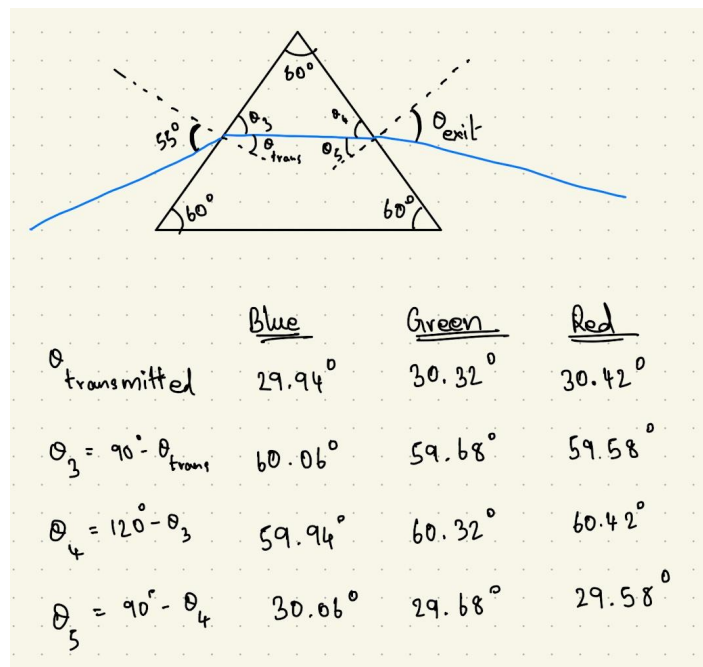 60°
55°
θ3
θ4
θexit
θtrans
θ5
60°
60°
Blue Green Red
θtransmitted 29.94° 30.32° 30.42°
θ3 = 90° - θtrans 60.06° 59.68° 59.58°
θ4 = 120° - θ3 59.94° 60.32° 60.42°
θ5 = 90° - θ4 30.06° 29.68° 29.58°